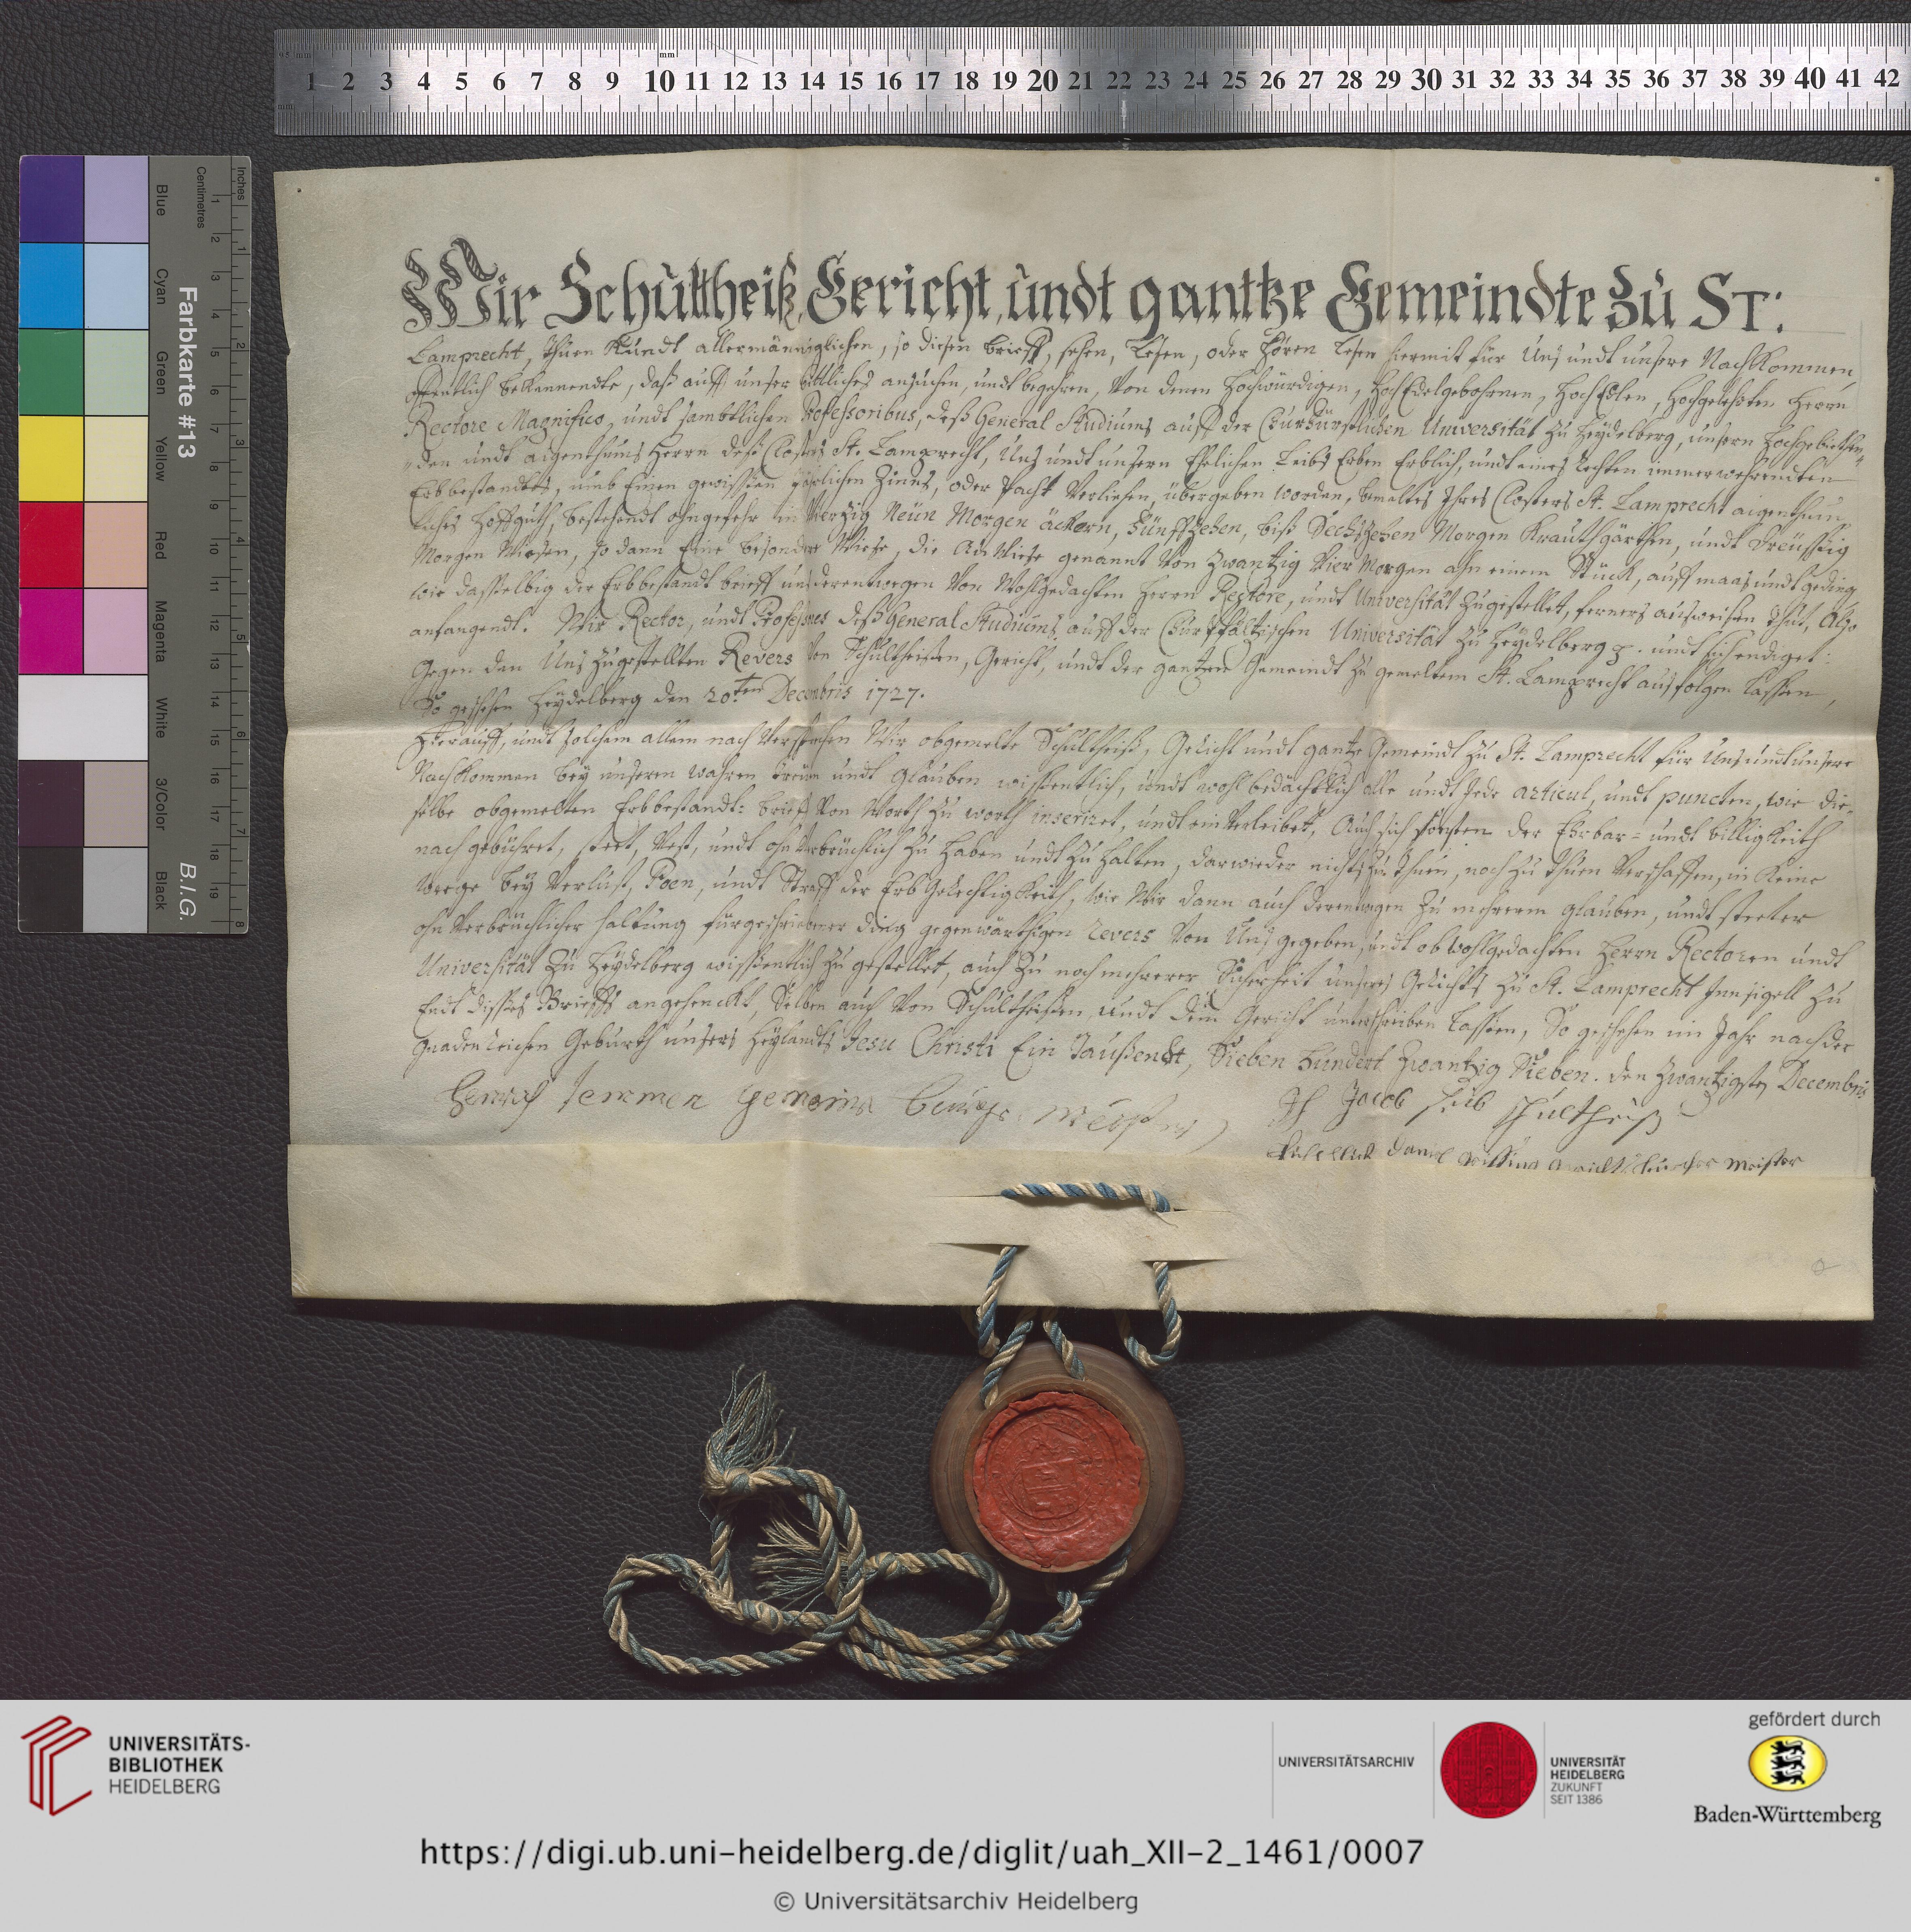 95 mm
mm
mm
1 2 3 4 5 6 7 8 9 10 11 12 13 14 15 16 17 18 19 20 21 22 23 24 25 26 27 28 29 30 31 32 33 34 35 36 37 38 39 40 41 42
Farbkarte #13
B.I.G.
Centimetres
Inches
Blue
Cyan
Green
Yellow
Red
Magenta
White
3/Color
Black
1 2 3 4 5 6 7 8 9 10 11 12 13 14 15 16 17 18 19
1 2 3 4 5 6 7 8
Wir Schultheiß, Gericht, undt gantze Gemeindte Zu ST:
Lamprecht, thuen Kundt allermänniglichen, so diesen brieff, sehen, Lesen, oder hören Lesen hiermit für Uns undt unsere NachKommen,
offentlich beKennendte, daß auff unser bittliches ansuchen, undt begehren, Von denen Hochwürdigen, HochEdelgebohrnen, HochEdlen, Hochgelehrten Herrn
Rectore Magnifico, undt sambtlichen Professoribus, deß General Studiums auff der ChurFürstlichen Universität zu Heydelberg, unsern Hochgebiethen
den undt aigenthums Herrn deß Closters St. Lamprecht, Uns undt unsern Ehelichen Leibs Erben Erblich, undt eines Rechten immerwehrendten
Erbbestandts, umb Einen gewissen jährlichen Zinns, oder Pacht Verliehen, übergeben worden, bemeltes Ihres Closters St. Lamprecht aigenthum
liches Hoffguth, bestehendt ohngefehr in Vierzig Neün Morgen äckern, Fünffzehen, biß Sechszehen Morgen Krauthgärthen, undt Dreüssig
Morgen Wiesen, so dann Eine besondere Wiese, die Au Wiese genannt Von Zwantzig Vier Morgen ahn einem Stück, auff maas undt geding
wie dasselbig der Erbbestandt brieff uns derentwegen Von Wohlgedachten Herrn Rectore, undt Universität Zugestellet, ferners ausweisen thut, Also
anfangendt. Wir Rector, undt Professores deß General Studiums auff der ChurPfältzischen Universität zu Heydelberg p. undt sich endiget:
Gegen den Uns Zugestellten Revers Von Schultheißen, Gericht, undt der gantzen Gemeindt zu gemeltem St. Lamprecht ausfolgen Lassen,
So geschehen Heydelberg den 20ten Decembris 1727.
Hierauff, undt solchem allem nach Versprechen Wir obgemelte Schultheiß, Gericht undt gantze Gemeindt zu St. Lamprecht für Uns undt unsere
NachKommen bey unserem wahren treüen undt Glauben wissentlich, undt wohlbedächtlich alle undt Jede articul, undt puncten, wie die
selbe obgemelten Erbbestandt= brieff Von Worth zu worth inseriret, undt einVerleibet, Auch sich sonsten der Ehrbar= undt billigKeith
nach gebühret, steet, Vest, undt ohnVerbrüchlich zu haben undt zu halten, darwieder nichts zu thuen, noch zu thuen Verschaffen, in Keine
weege bey Verlust, Poen, undt Straff der ErbGerechtigKeith, wie Wir dann auch derentwegen zu mehrerem glauben, undt steeter
ohnVerbrüchlicher haltung fürgeschriebener ding gegenwärthigen Revers Von Uns gegeben, undt obwohlgedachten Herrn Rectoren undt
Universität zu Heydelberg wissentlich zugestellet, auch zu noch mehrerer Sicherheit unsers Gerichts zu St. Lamprecht Innsigell zu
Endt dieses Brieffs angehenckt, Selben auch Von Schultheißen undt dem Gericht unterschreiben Lassen, So geschehen im Jahr nach der
Gnadenreichen Geburth unsers Heylandts Jesu Christi Ein Taußendt, Sieben Hundert Zwantzig Sieben. den Zwantzigsten Decembris
Jacob schultheiß
Daniel meister
UNIVERSITÄTS-
BIBLIOTHEK
HEIDELBERG
UNIVERSITÄTSARCHIV
UNIVERSITÄT
HEIDELBERG
ZUKUNFT
SEIT 1386
gefördert durch
Baden-Württemberg
https://digi.ub.uni-heidelberg.de/diglit/uah_XII-2_1461/0007
© Universitätsarchiv Heidelberg